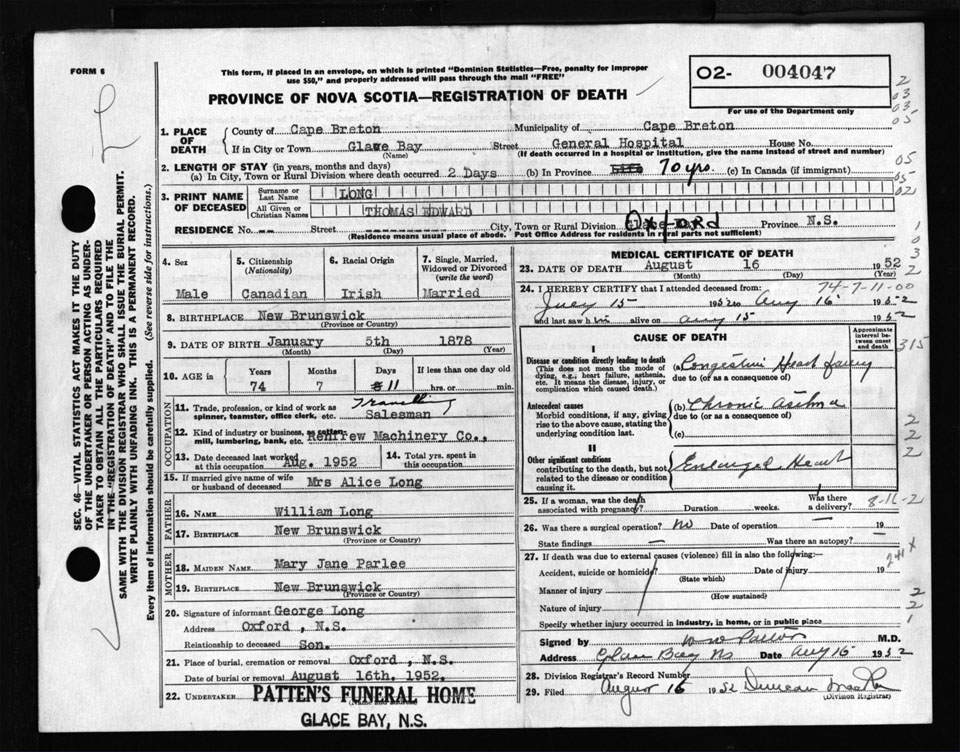 FORM 6
This form, if placed in an envelope, on which is printed "Dominion Statistics—Free, penalty for improper
use $50," and properly addressed will pass through the mail "FREE"
PROVINCE OF NOVA SCOTIA—REGISTRATION OF DEATH
02- 004047
For use of the Department only
2
03
03
05
05
05
02
1
0
3
2
SEC. 46—VITAL STATISTICS ACT MAKES IT THE DUTY
OF THE UNDERTAKER OR PERSON ACTING AS UNDER-
TAKER TO OBTAIN ALL THE PARTICULARS REQUIRED
IN THE "REGISTRATION OF DEATH" AND TO FILE THE
SAME WITH THE DIVISION REGISTRAR WHO SHALL ISSUE THE BURIAL PERMIT.
WRITE PLAINLY WITH UNFADING INK. THIS IS A PERMANENT RECORD.
Every item of information should be carefully supplied. (See reverse side for instructions.)
1. PLACE OF DEATH
County of Cape Breton Municipality of Cape Breton
If in City or Town Glace Bay Street General Hospital House No.
(Name) (If death occurred in a hospital or institution, give the name instead of street and number)
2. LENGTH OF STAY (in years, months and days)
(a) In City, Town or Rural Division where death occurred 2 Days (b) In Province 70 yrs. (c) In Canada (if immigrant)
3. PRINT NAME OF DECEASED
Surname or Last Name LONG
All Given or Christian Names THOMAS EDWARD
RESIDENCE No. -- Street City, Town or Rural Division OXFORD Province N.S.
(Residence means usual place of abode. Post Office Address for residents in rural parts not sufficient)
4. Sex
Male
5. Citizenship
(Nationality)
Canadian
6. Racial Origin
Irish
7. Single, Married,
Widowed or Divorced
(write the word)
Married
8. BIRTHPLACE New Brunswick
(Province or Country)
9. DATE OF BIRTH January 5th 1878
(Month) (Day) (Year)
10. AGE in
Years Months Days If less than one day old
74 7 11 hrs. or min.
OCCUPATION
11. Trade, profession, or kind of work as
spinner, teamster, office clerk, etc. Travelling Salesman
12. Kind of industry or business, as cotton
mill, lumbering, bank, etc. Renfrew Machinery Co.,
13. Date deceased last worked
at this occupation Aug. 1952
14. Total yrs. spent in
this occupation
15. If married give name of wife
or husband of deceased Mrs Alice Long
FATHER
16. NAME William Long
17. BIRTHPLACE New Brunswick
(Province or Country)
MOTHER
18. MAIDEN NAME Mary Jane Parlee
19. BIRTHPLACE New Brunswick
(Province or Country)
20. Signature of informant George Long
Address Oxford , N.S.
Relationship to deceased Son.
21. Place of burial, cremation or removal Oxford , N.S.
Date of burial or removal August 16th. 1952.
22. UNDERTAKER PATTEN'S FUNERAL HOME
GLACE BAY, N.S.
MEDICAL CERTIFICATE OF DEATH
23. DATE OF DEATH August 16 1952
(Month) (Day) (Year)
74-7-11-00
24. I HEREBY CERTIFY that I attended deceased from:
July 15 1952 to Aug 16 1952
and last saw him alive on Aug 15 1952
CAUSE OF DEATH
Approximate
interval be-
tween onset
and death
315
I
Disease or condition directly leading to death
(This does not mean the mode of
dying, e.g., heart failure, asthenia,
etc. It means the disease, injury, or
complication which caused death.)
(a) Congestive Heart failure
due to (or as a consequence of)
Antecedent causes
Morbid conditions, if any, giving
rise to the above cause, stating the
underlying condition last.
(b) Chronic Asthma
due to (or as a consequence of)
(c)
2
2
2
II
Other significant conditions
contributing to the death, but not
related to the disease or condition
causing it.
Enlarged Heart
25. If a woman, was the death
associated with pregnancy? Duration weeks. Was there
a delivery?
8-16-2
26. Was there a surgical operation? no Date of operation — 19
State findings — Was there an autopsy? —
27. If death was due to external causes (violence) fill in also the following:—
Accident, suicide or homicide? Date of injury 19
(State which)
Manner of injury
(How sustained)
Nature of injury
Specify whether injury occurred in industry, in home, or in public place
2
2
1
Signed by W W Patton M.D.
Address Glace Bay NS Date Aug 16 1952
28. Division Registrar's Record Number
29. Filed August 16 1952 Duncan
(Division Registrar)